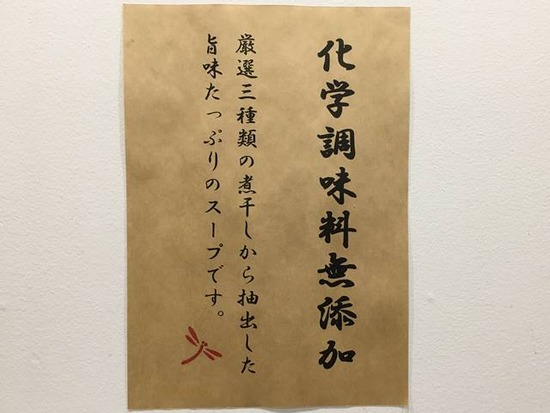 化学調味料無添加
厳選三種類の煮干しから抽出した
旨味たっぷりのスープです。